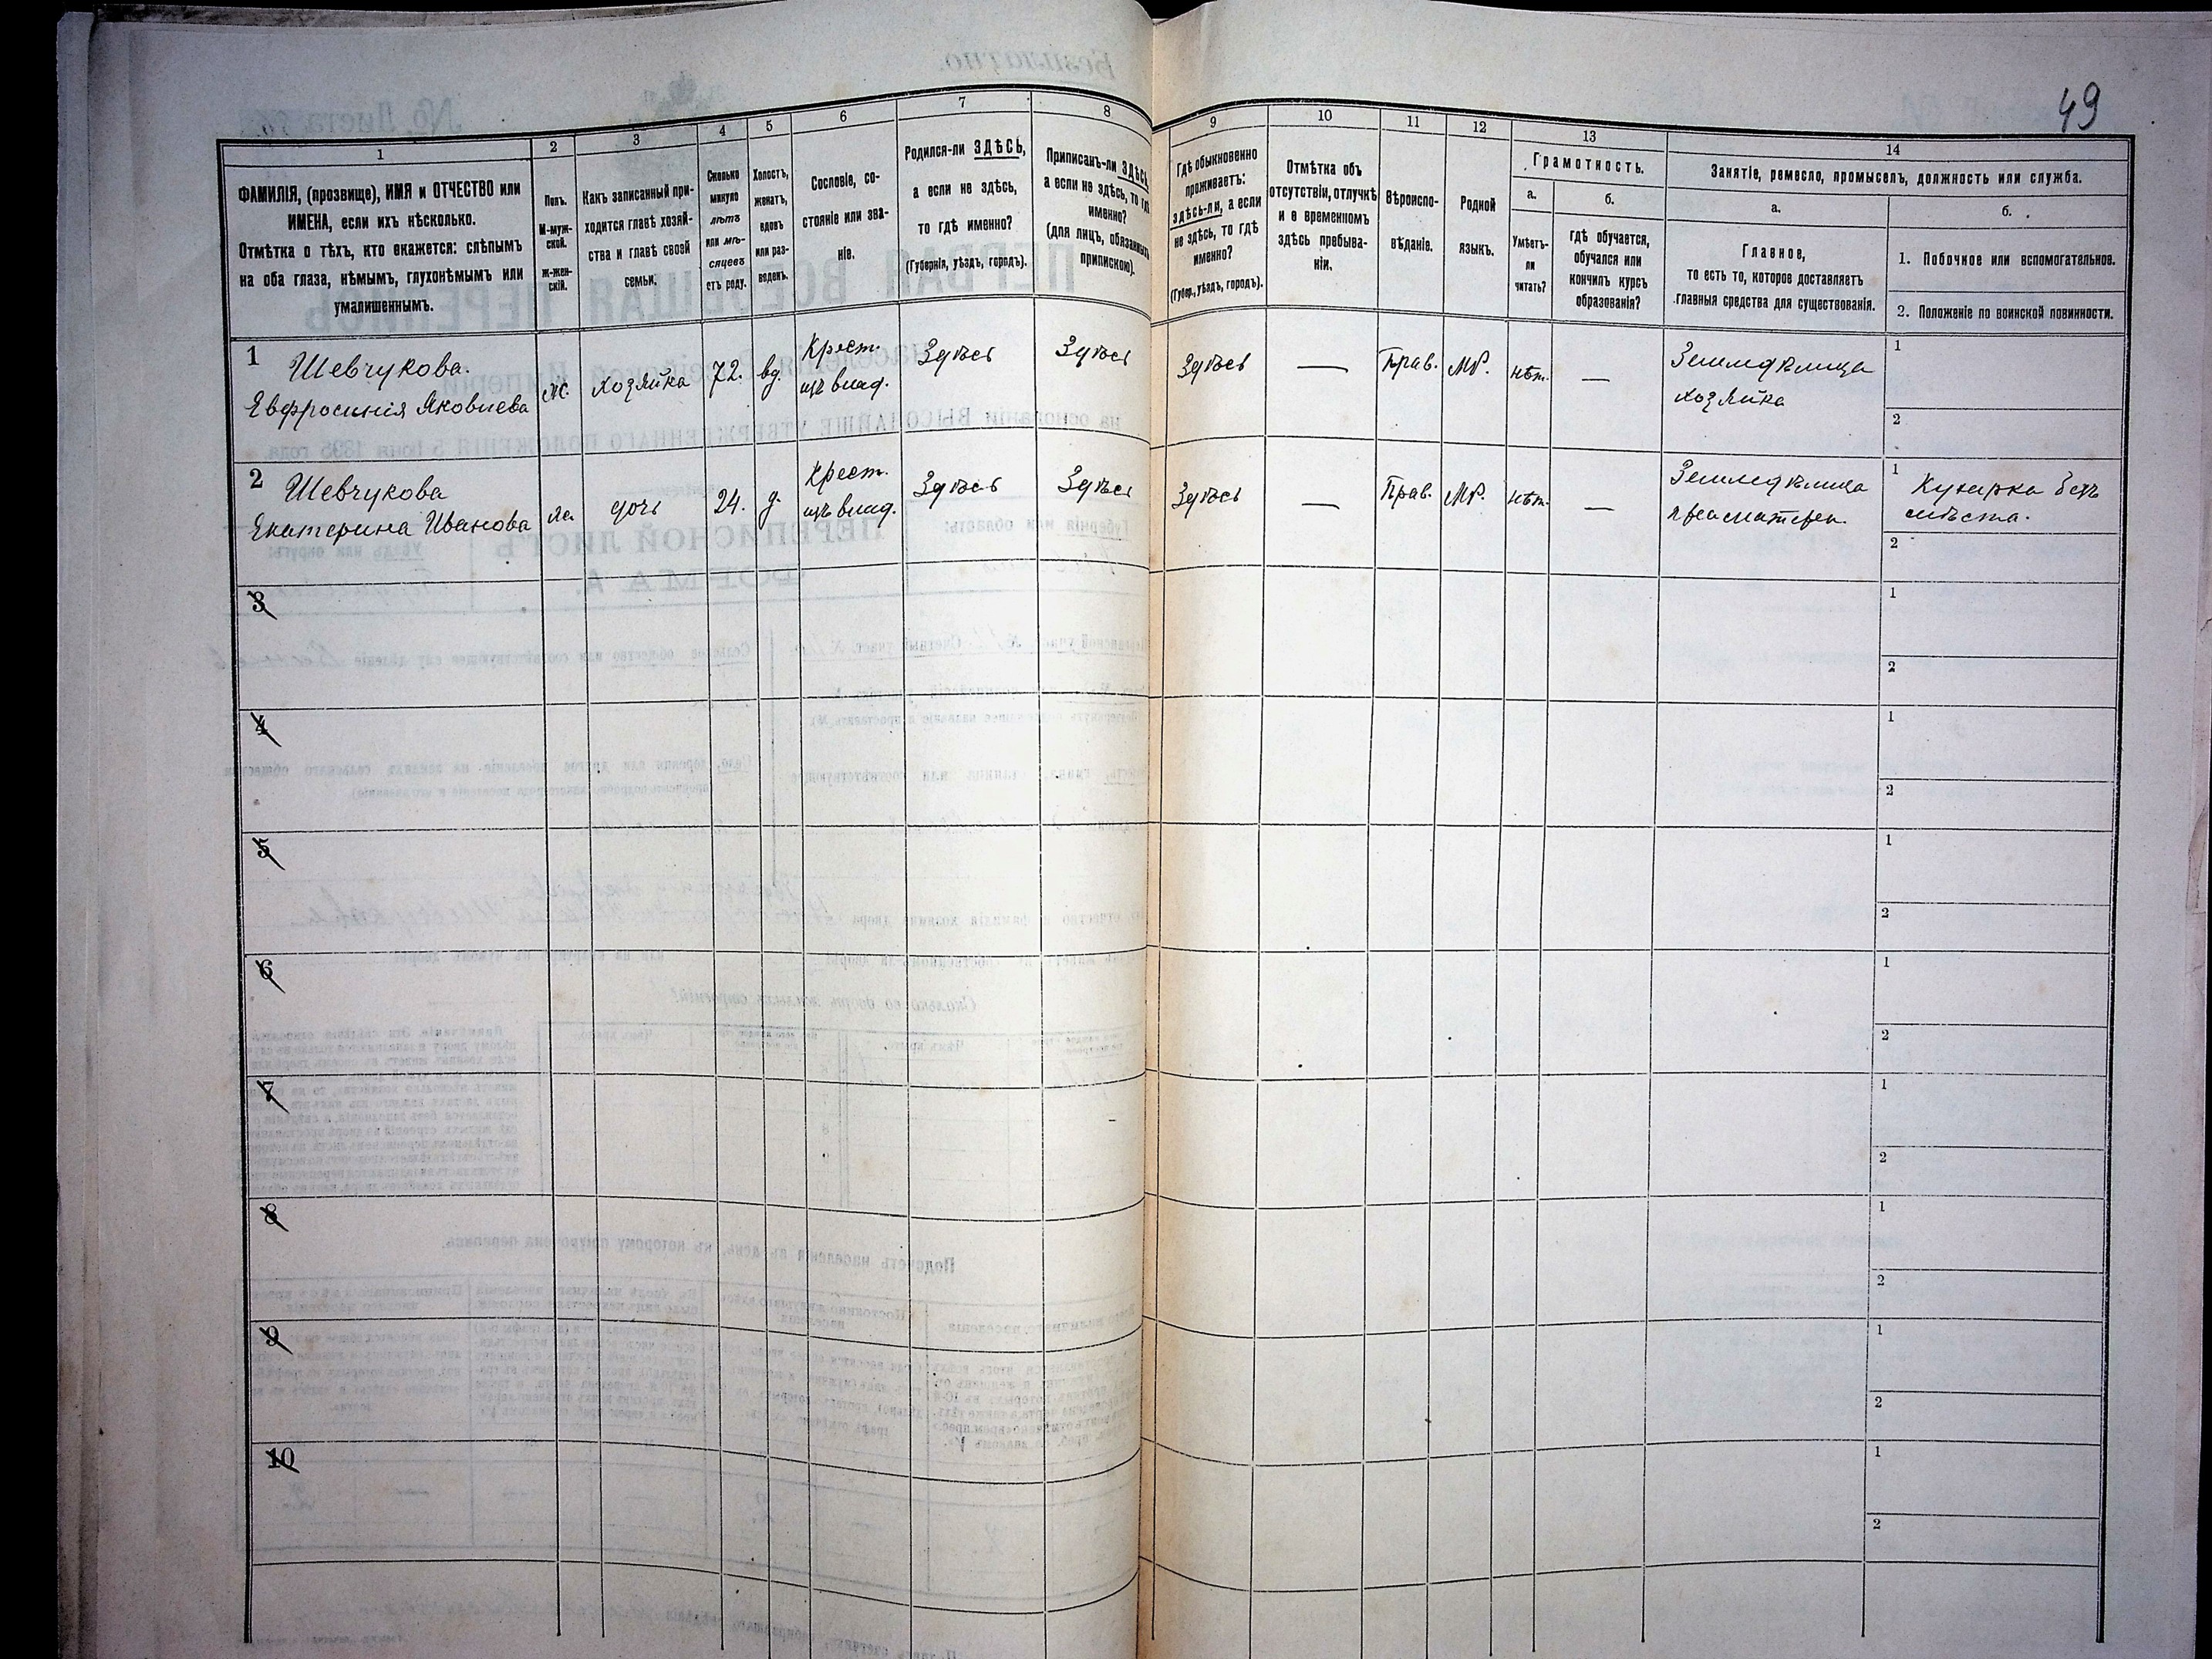 49
1
2
3
4
5
6
7
8
9
10
11
12
13
14
ФАМИЛІЯ, (прозвище), ИМЯ и ОТЧЕСТВО или
ИМЕНА, если ихъ нѣсколько.
Отмѣтка о тѣхъ, кто окажется: слѣпымъ
на оба глаза, нѣмымъ, глухонѣмымъ или
умалишеннымъ.
Полъ.
М-муж-
ской.
ж-жен-
скій.
Какъ записанный при-
ходится главѣ хозяй-
ства и главѣ своей
семьи.
Сколько
минуло
лѣтъ
или мѣ-
сяцевъ
отъ роду.
Холостъ,
женатъ,
вдовъ
или раз-
веденъ.
Сословіе, со-
стояніе или зва-
ніе.
Родился-ли ЗДѢСЬ,
а если не здѣсь,
то гдѣ именно?
(Губернія, уѣздъ, городъ).
Приписанъ-ли ЗДѢСЬ,
а если не здѣсь, то гдѣ
именно?
(для лицъ, обязанныхъ
припискою).
Гдѣ обыкновенно
проживаетъ:
здѣсь-ли, а если
не здѣсь, то гдѣ
именно?
(Губер., уѣздъ, городъ).
Отмѣтка объ
отсутствіи, отлучкѣ
и о временномъ
здѣсь пребыва-
ніи.
Вѣроиспо-
вѣданіе.
Родной
языкъ.
Грамотность.
а.
Умѣетъ-
ли
читать?
б.
гдѣ обучается,
обучался или
кончилъ курсъ
образованія?
Занятіе, ремесло, промыселъ, должность или служба.
а.
Главное,
то есть то, которое доставляетъ
главныя средства для существованія.
б.
1. Побочное или вспомогательное.
2. Положеніе по воинской повинности.
1 Шевчукова.
Евфросинія Яковлева
ж.
хозяйка
72.
вд.
Крест.
изъ влад.
Здѣсь
Здѣсь
Здѣсь
—
Прав.
МР.
нѣт.
—
Земледѣлица
хозяйка
1
2
2 Шевчукова
Екатерина Иванова
ж.
дочь
24.
д.
Крест.
изъ влад.
Здѣсь
Здѣсь
Здѣсь
—
Прав.
МР.
нѣт.
—
Земледѣлица
1 Кухарка безъ
мѣста.
2
3
1
2
4
1
2
5
1
2
6
1
2
7
1
2
8
1
2
9
1
2
10
1
2